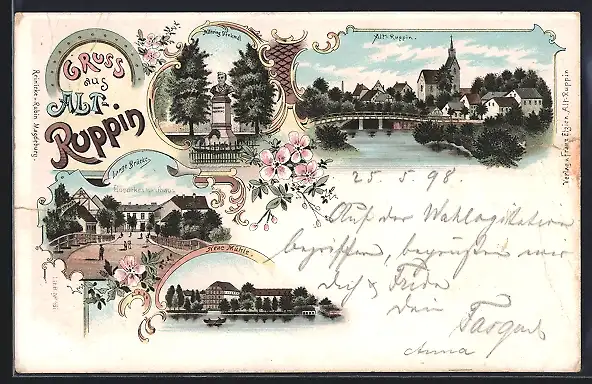 Gruss
aus
Alt-
Ruppin
Alt-Ruppin.
Lange Brücke.
Neue Mühle.
Reinicke & Rubin, Magdeburg.
Verlag v. Franz Alt-Ruppin
25. 5. 98.
Auf der Wahlagitation
begriffen, begrüßen wir
Dich &
Dein
Anna